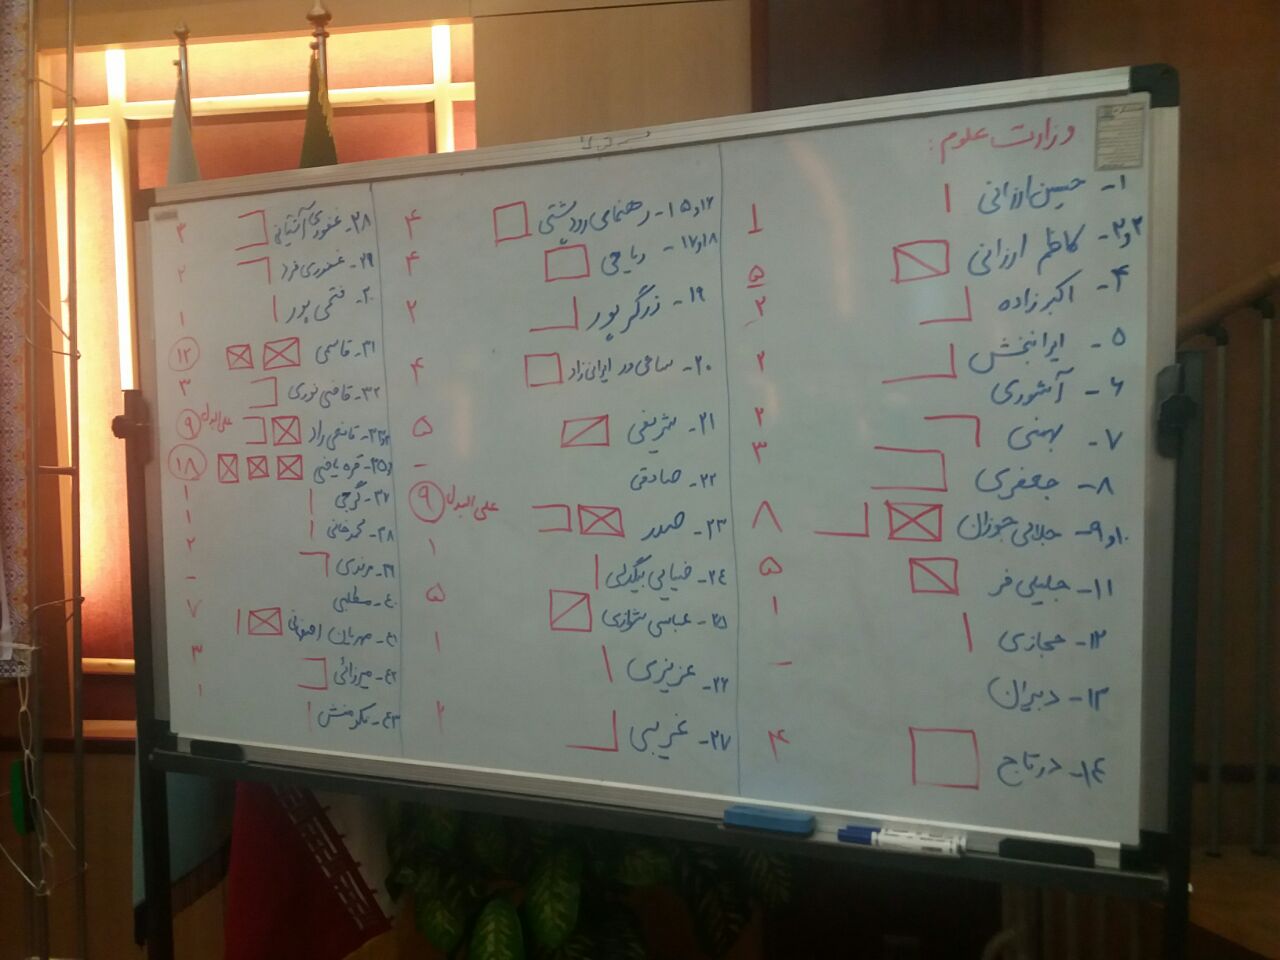 وزارت علوم:
۱- حسین ارزانی ۱
۲و۳- کاظم ارزانی ۵
۴- اکبرزاده ۲
۵- ایرانبخش ۲
۶- آشوری
۷- بهمنی ۲
۸- جعفری ۳
۹و۱۰- جلالی جوزان ۸
۱۱- جلیلی فر ۵
۱۲- حجازی ۱
۱۳- دبیران -
۱۴- درتاج ۴
۱۵و۱۶- رهنمای رودپشتی ۴
۱۷و۱۸- ریاحی ۴
۱۹- زرگرپور ۲
۲۰- ایرانی زاد ۴
۲۱- شریفی ۵
۲۲- صادقی -
۲۳- صدر علی البدل ۹
۲۴- ضیایی بیگدلی ۱
۲۵- عباسی ۵
۲۶- عزیزی ۱
۲۷- غریبی ۲
۲۸- غفوری آشتیانی ۳
۲۹- غفوری فرد ۲
۳۰- فتحی پور ۱
۳۱- قاسمی ۱۲
۳۲- قاضی نوری ۳
قانعی راد علی البدل ۹
قره یاضی ۱۸
۳۷- گرجی ۱
۳۸- ۱
۳۹- مرندی ۲
۴۰- مطلبی -
۴۱- اصفهانی ۷
۴۲- میرزائی ۳
۴۳- نکومنش ۱